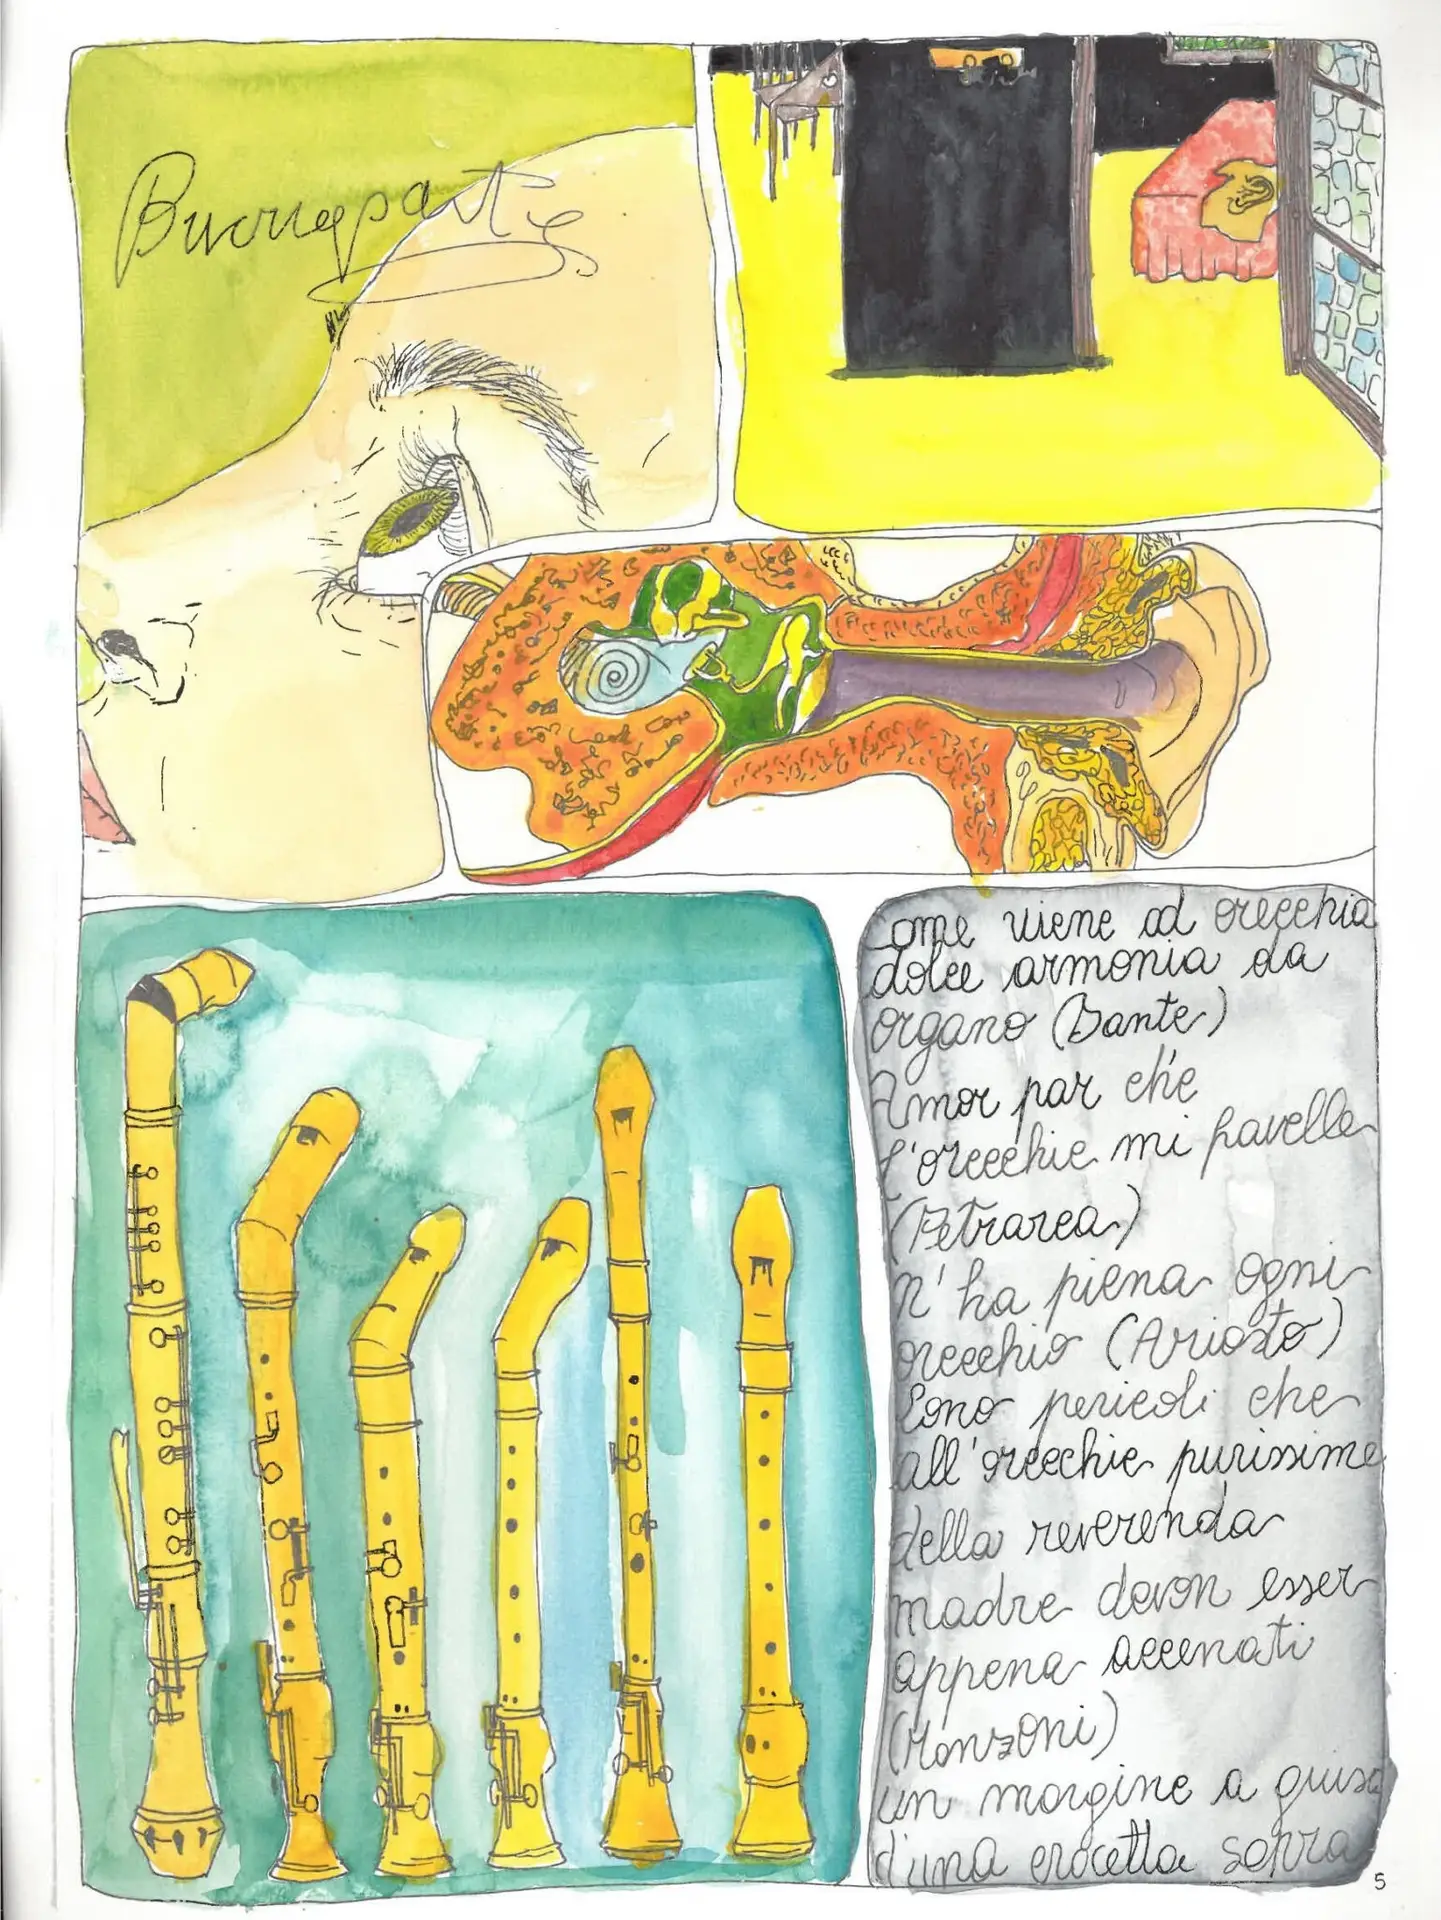 Buonaparte
Come viene ad orecchia
dolce armonia da
organo (Dante)
Amor par ch'e
l'orecchie mi favelle
(Petrarca)
N'ha piena ogni
orecchio (Ariosto)
Sono pericoli che
all'orecchie purissime
della reverenda
madre devon esser
appena accennati
(Manzoni)
un margine a guisa
d'una crocetta sopra
5